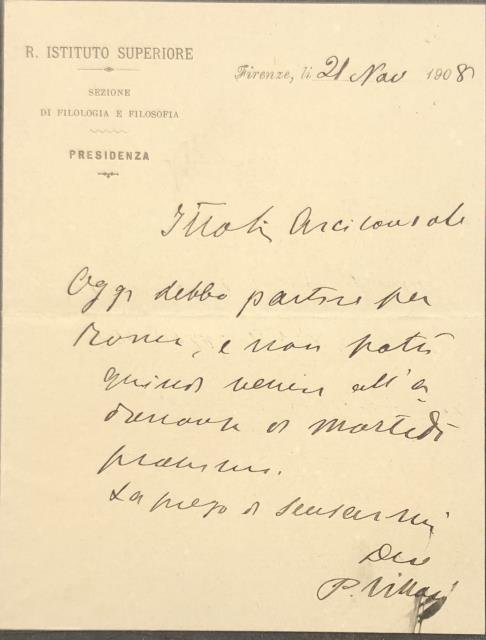 R. ISTITUTO SUPERIORE
SEZIONE
DI FILOLOGIA E FILOSOFIA
PRESIDENZA
Firenze, li 21 Nov 1908
Arciconsole
Oggi debbo partire per
Roma, e non potrò
quindi venire all'a
dunanza di martedì
prossimo.
La prego di scusarmi
Dev
P. Villari